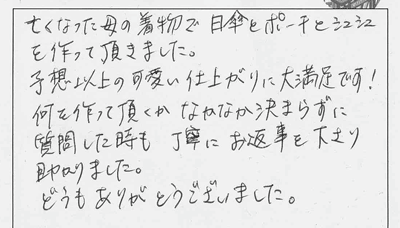 亡くなった母の着物で日傘とポーチとシュシュ
を作って頂きました。
予想以上の可愛い仕上がりに大満足です！
何を作って頂くかなかなか決まらずに
質問した時も丁寧にお返事を下さり
助かりました。
どうもありがとうございました。